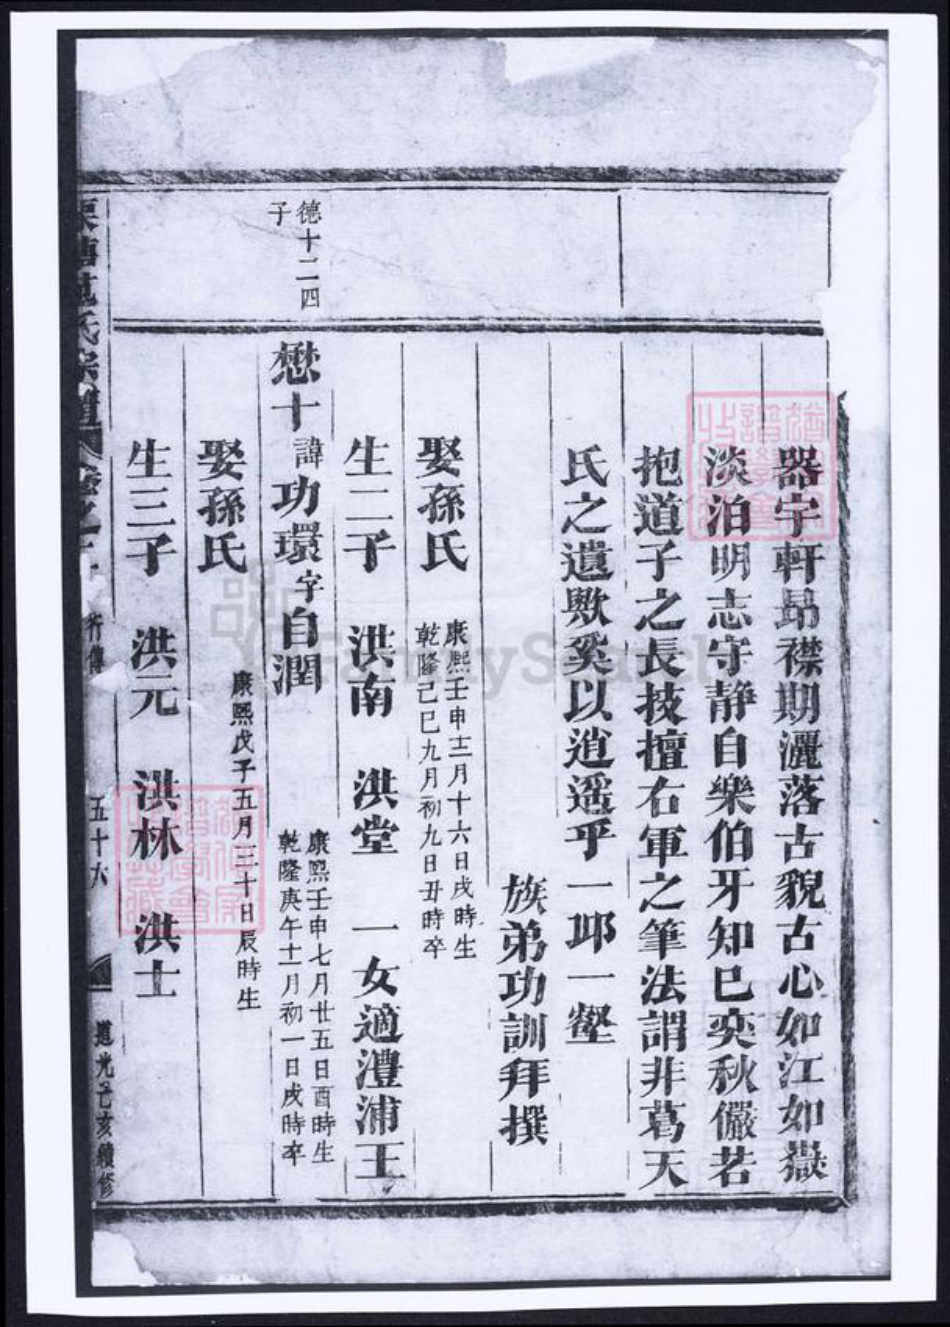 器宇軒昂襟期灑落古貌古心如江如嶽
淡泊明志守靜自樂伯牙知己奕秋儼若
抱道子之長技擅右軍之筆法謂非葛天
氏之遺歟奚以逍遥乎一邱一壑
族弟功訓拜撰
娶孫氏
康熙壬申十二月十六日戌時生
乾隆己巳九月初九日丑時卒
生二子 洪南 洪堂 一女適澧浦王
德十二四
子
懋十諱功環字自潤
康熙壬申七月廿五日酉時生
乾隆庚午十一月初一日戌時卒
娶孫氏
康熙戊子五月三十日辰時生
生三子 洪元 洪林 洪士
氏宗譜 卷之
行傳
五十六
道光己亥續修
FamilySearch